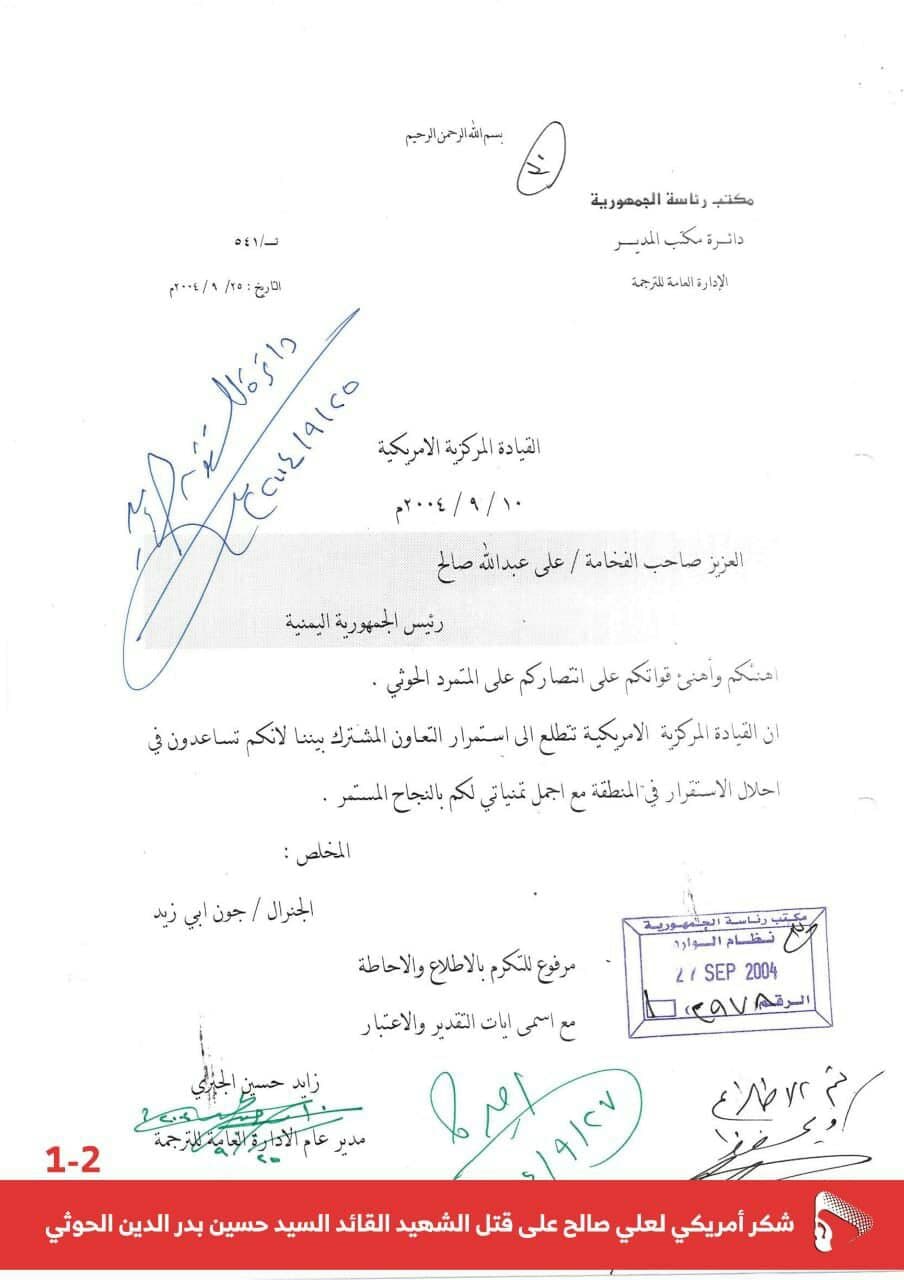 بسم الله الرحمن الرحيم
مكتب رئاسة الجمهورية
دائرة مكتب المدير
الإدارة العامة للترجمة
تـ/٥٤١
التاريخ : ٢٥/ ٩ / ٢٠٠٤م
٢٠٠٤/٩/٢٥
القيادة المركزية الامريكية
١٠ / ٩ / ٢٠٠٤م
العزيز صاحب الفخامة / علي عبدالله صالح
رئيس الجمهورية اليمنية
اهنئكم وأهنئ قواتكم على انتصاركم على المتمرد الحوثي .
ان القيادة المركزية الامريكية تتطلع الى استمرار التعاون المشترك بيننا لانكم تساعدون في
احلال الاستقرار في المنطقة مع اجمل تمنياتي لكم بالنجاح المستمر .
المخلص :
الجنرال / جون ابي زيد
مرفوع للتكرم بالاطلاع والاحاطة
مع اسمى ايات التقدير والاعتبار
مكتب رئاسة الجمهورية
نظام الوارد
27 SEP 2004
الرقم
زايد حسين الجنري
مدير عام الادارة العامة للترجمة
تم الاطلاع
ويحفظ
٩/٢٧
1-2
شكر أمريكي لعلي صالح على قتل الشهيد القائد السيد حسين بدر الدين الحوثي